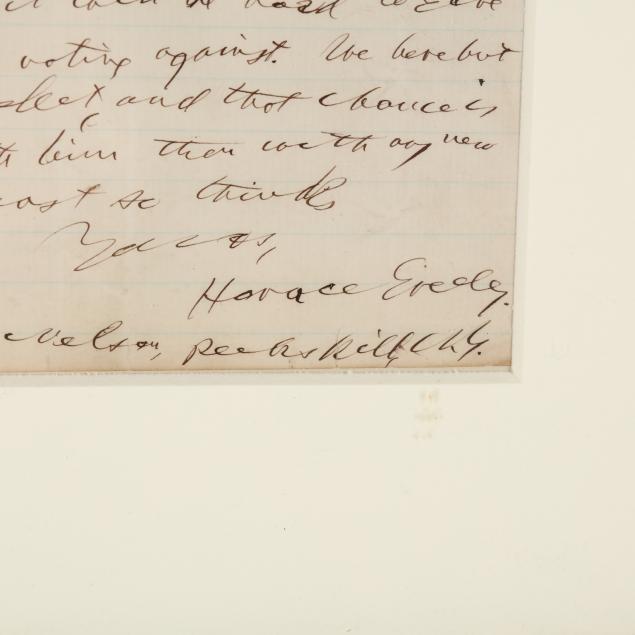 voting against. We have but
and that chance is
him than with any new
so thinks
Yours,
Horace Greeley.
Nelson, Peekskill, N.Y.